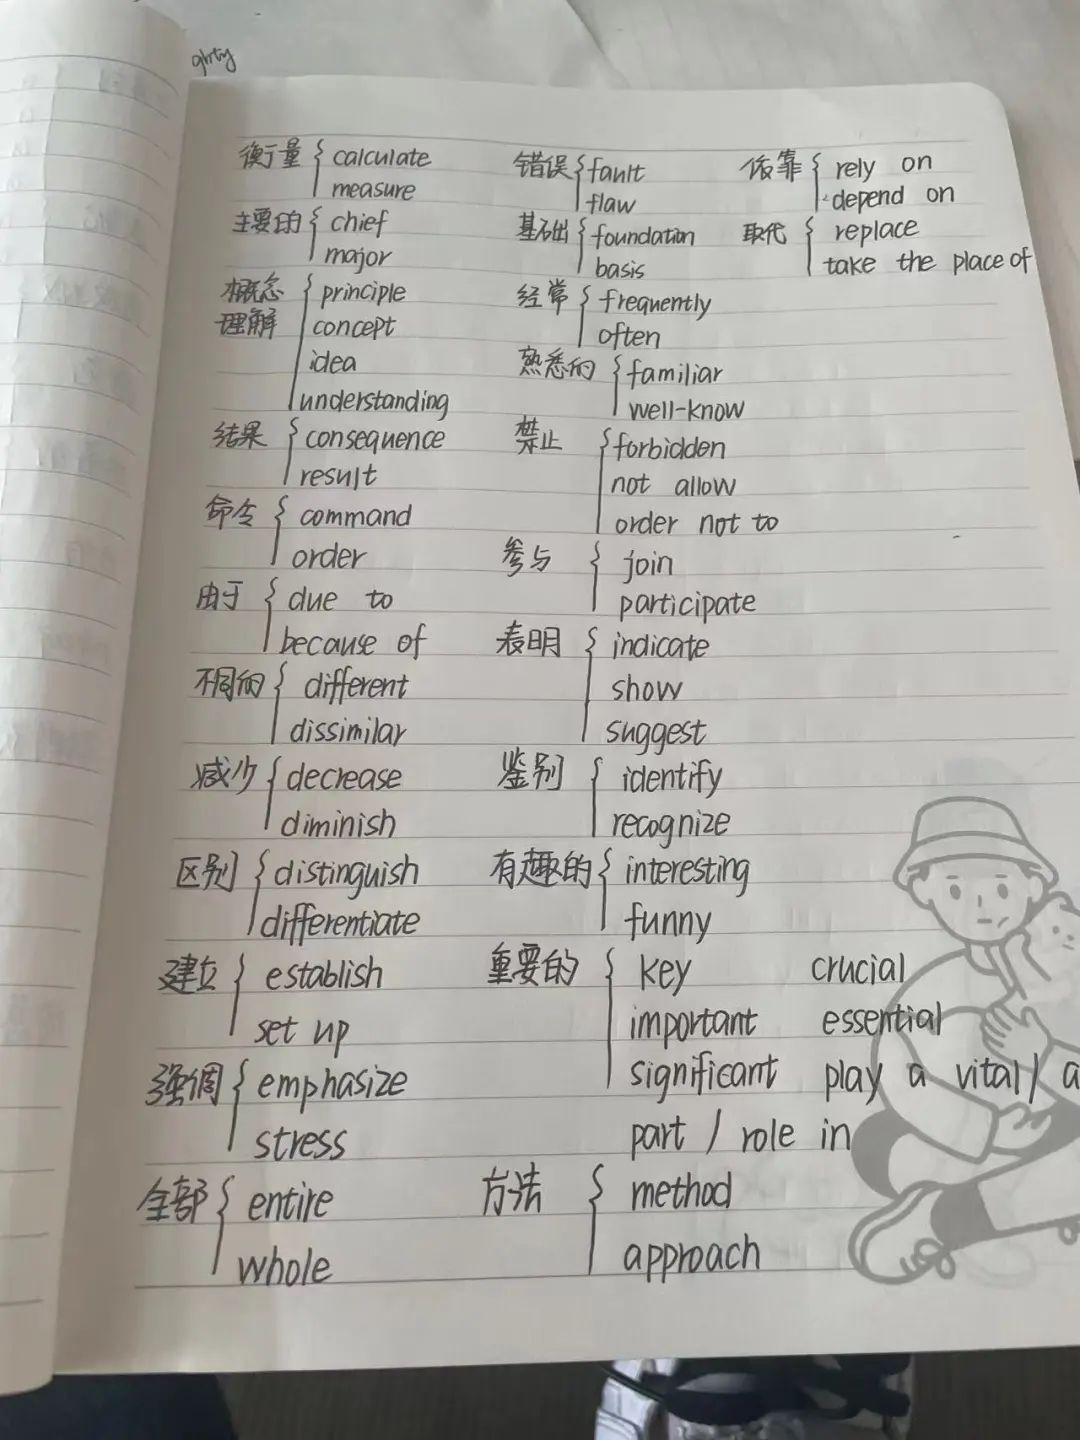 衡量 { calculate
measure
主要的 { chief
major
概念 { principle
理解 concept
idea
understanding
结果 { consequence
result
命令 { command
order
由于 { due to
because of
不同的 { different
dissimilar
减少 { decrease
diminish
区别 { distinguish
differentiate
建立 { establish
set up
强调 { emphasize
stress
全部 { entire
whole
错误 { fault
flaw
基础 { foundation
basis
经常 { frequently
often
熟悉的 { familiar
well-know
禁止 { forbidden
not allow
order not to
参与 { join
participate
表明 { indicate
show
suggest
鉴别 { identify
recognize
有趣的 { interesting
funny
重要的 { key crucial
important essential
significant play a vital / a
part / role in
方法 { method
approach
依靠 { rely on
depend on
取代 { replace
take the place of